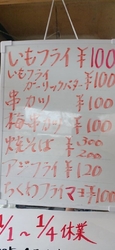 いもフライ ¥100
いもフライ
ガーリックバター ¥100
串カツ ¥100
梅串カツ ¥100
焼そば ¥300
200
アジフライ ¥120
ちくわフライ ¥100
1/1〜1/4休業